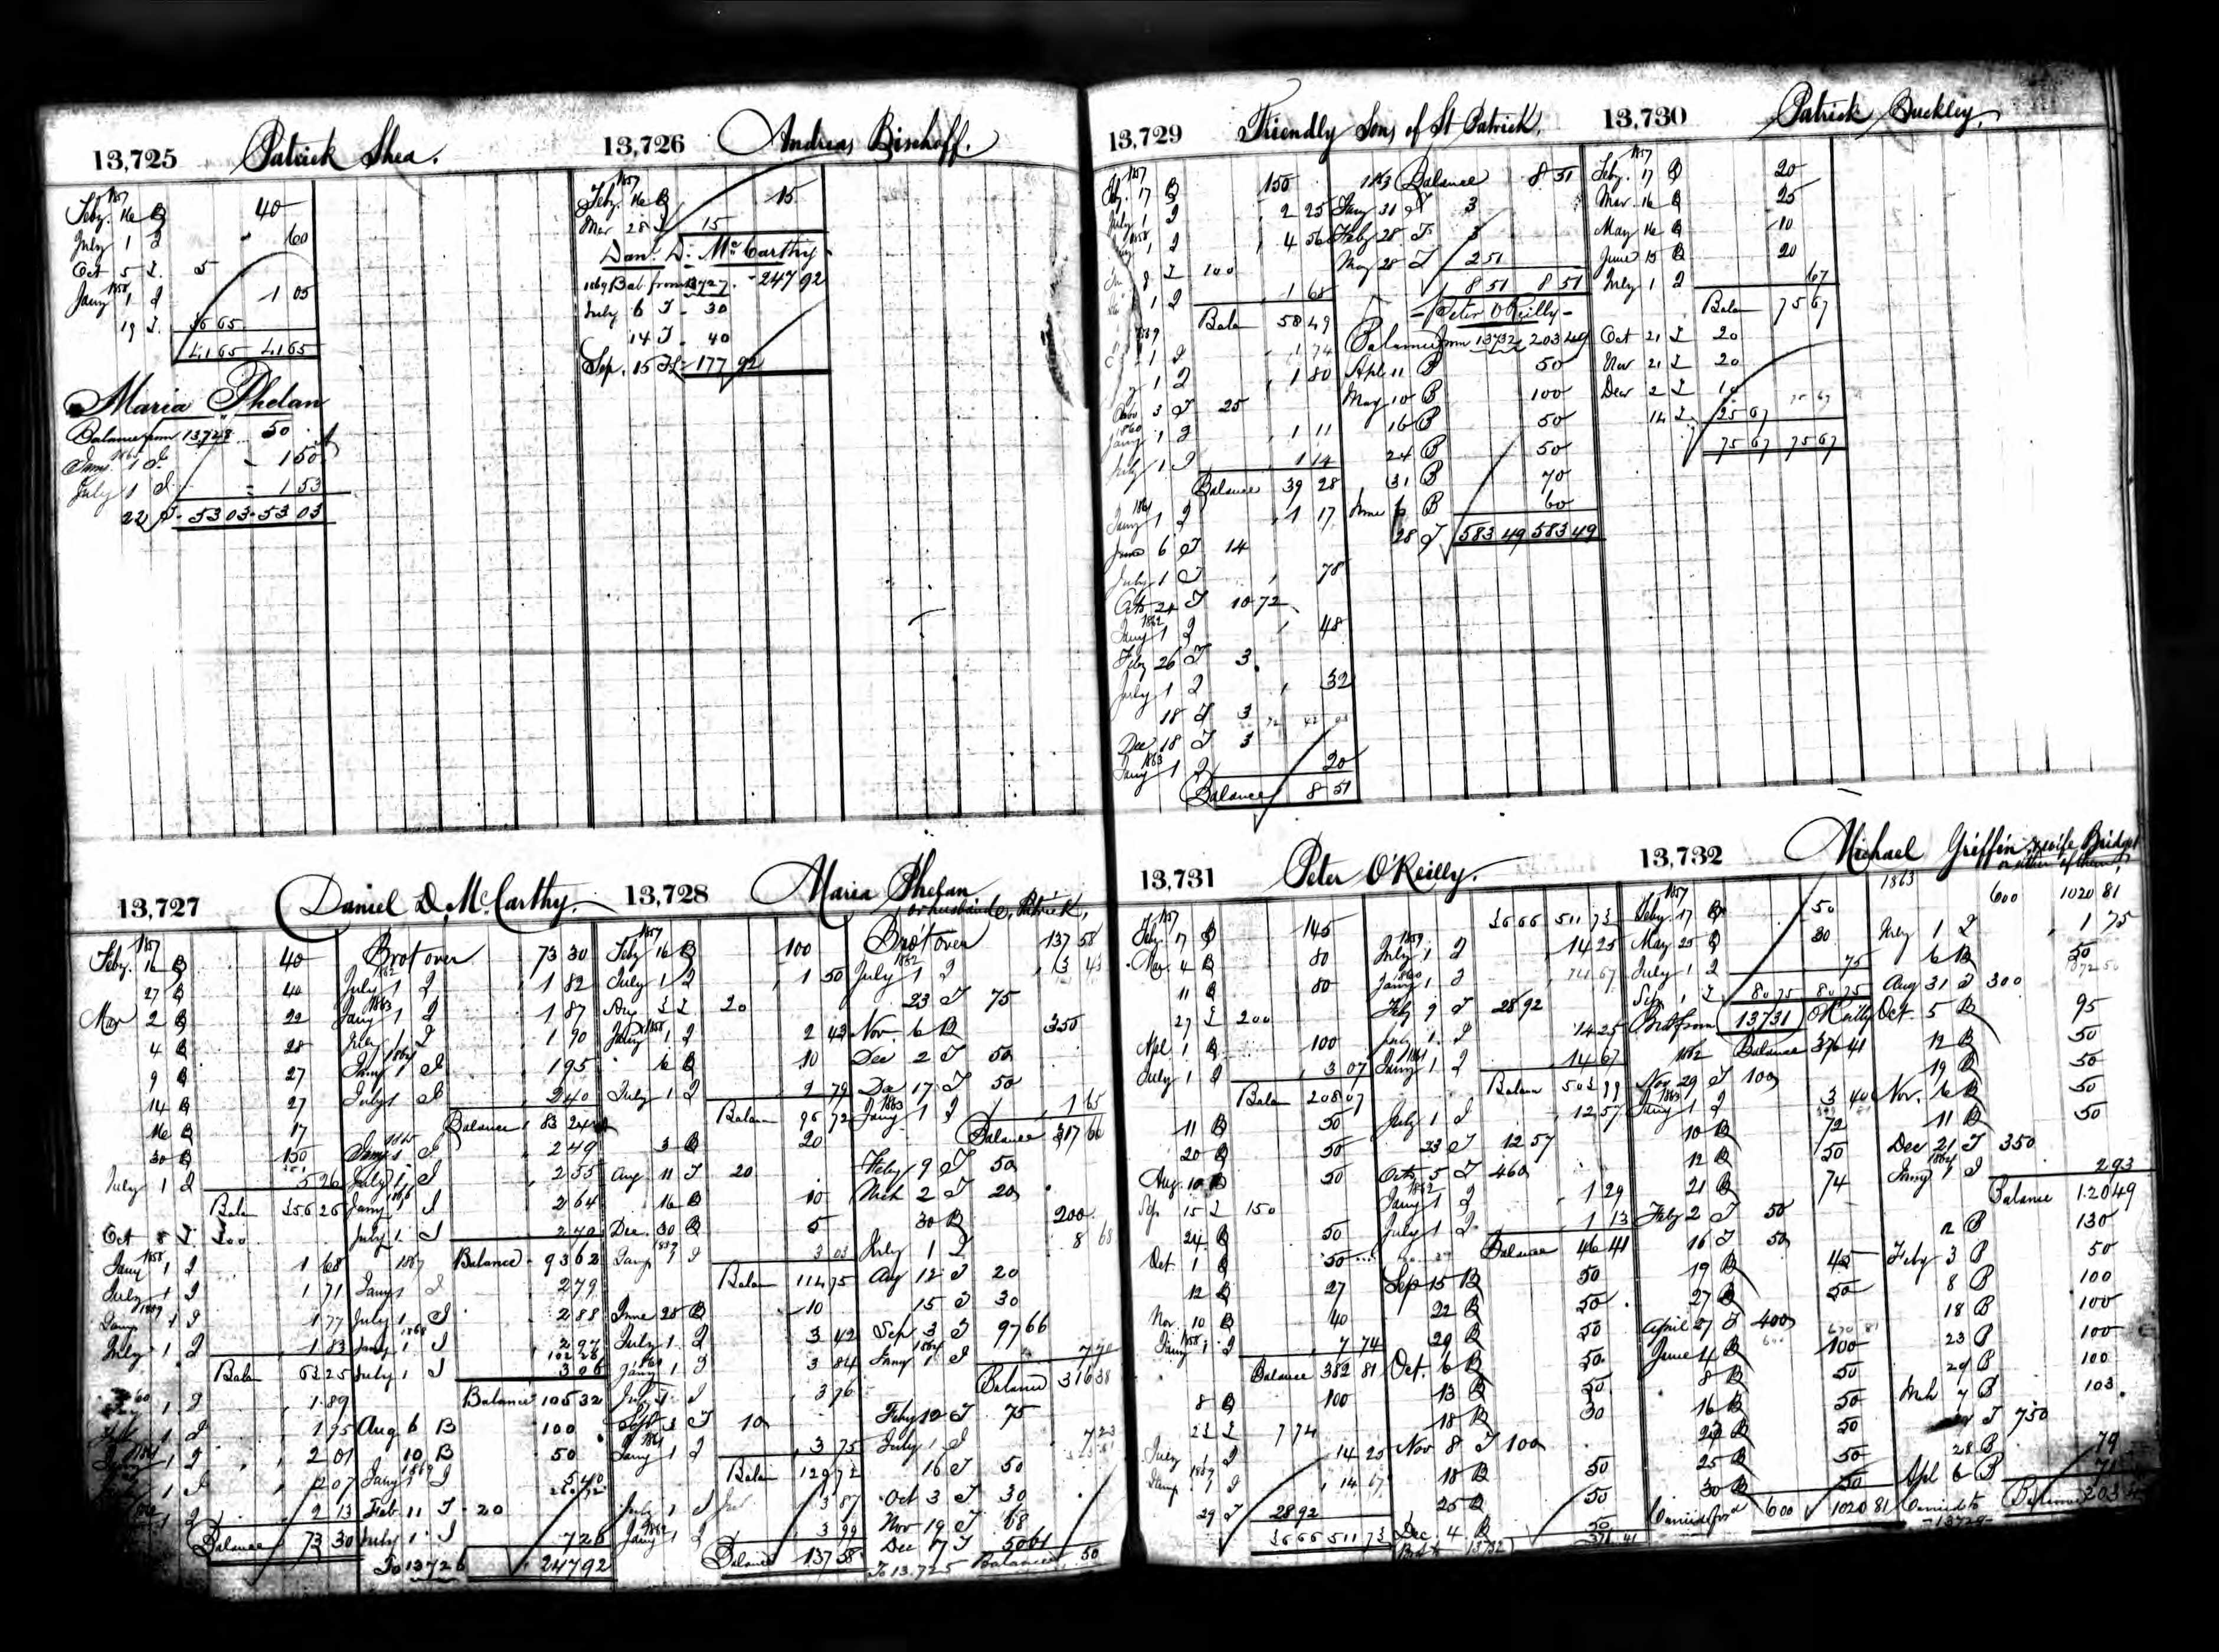 13,725 Patrick Shea.
1857
Feby. 16 B 40
July 1 I 60
Oct 5 I. 5
1858
Jany 1 I 1 05
19 I. 36 65
41 65 41 65
Maria Phelan
Balance from 13728 50
Jany. 1 I. 1 50
July 1 I. 1 53
22 I. 53 03 53 03
13,726 Andreas Bischoff.
1857
Feby. 16 B 15
Mar 28 I 15
Danl. D. McCarthy
1869 Bal. from 13727. 247 92
July 6 I 30
14 I. 40
Sep. 15 I 177 92
13,729 Friendly Sons of St Patrick.
1857
Feby. 17 B 150
July 1 I 2 25
1858
1 I 4 56
8 I 100
1 I 1 68
Bala 58 49
1859
1 I 1 74
1 I 1 80
3 I 25
1860
Jany 1 I 1 11
July 1 I 1 14
Balance 39 28
1861
Jany 1 I 1 17
June 6 I 14
July 1 I 78
Oct. 24 I 10 72
1862
Jany 1 I 48
Feby 26 I 3
July 1 I 32
18 I 3
Dec 18 I 3
1863
Jany 1 I 20
Balance 8 51
1863 Balance 8 51
Jany 31 I 3
Feby 28 I 3
May 28 I 2 51
8 51 8 51
Peter O'Reilly
Balance from 13732 203 49
Apl. 11 B 50
May 10 B 100
16 B 50
24 B 50
31 B 70
June 6 B 60
28 I 583 49 583 49
13,730 Patrick Buckley.
1857
Feby. 17 B 20
Mar 16 B 25
May 16 B 10
June 15 B 20
July 1 I 67
Bala 75 67
Oct 21 I 20
Nov 21 I 20
Dec 2 I 10
14 I. 25 67
75 67 75 67
13,727 Daniel D. McCarthy.
1857
Feby. 16 B 40
27 B 40
Mar 2 B 22
4 B 28
9 B 27
14 B 27
16 B 17
30 B 150
July 1 I 5 26
Bala 356 26
Oct 8 I. 300
1858
Jany 1 I 1 68
July 1 I 1 71
1859
Jany 1 I 1 77
July 1 I 1 83
Bala 63 25
60
1 I 1 89
1 I 1 95
1861
1 I 2 01
1 I 2 07
1 I 2 13
Balance 73 30
Brot over 73 30
1862
July 1 I 1 82
1863
Jany 1 I 1 87
July 1 I 1 90
1864
Jany 1 I 1 95
July 1 I 2 40
Balance 83 24
1865
Jany 1 I 2 49
July 1 I 2 55
1866
Jany 1 I 2 64
July 1 I 2 70
1867 Balance 93 62
Jany 1 I 2 79
July 1 I 2 88
1868
Jany 1 I 2 97
July 1 I 3 06
Balance 105 32
Aug 6 B 100
10 B 50
1869
Jany 1 I 5 40
Feb. 11 I 20
July 1 I 7 20
To 13726 247 92
13,728 Maria Phelan
or husband, Patrick,
1857
Feby 16 B 100
July 1 I 1 50
Aug 3 I 20
1858
Jany 1 I 2 43
6 B 10
July 1 I 2 79
Balan 96 72
3 B 20
Aug. 11 I 20
16 B 10
Dec. 30 B 5
1859
Jany 1 I 3 03
Balan 114 75
June 28 B 10
July 1 I 3 42
1860
Jany 1 I 3 84
July 1 I 3 76
Sept 3 I 10
1861
Jany 1 I 3 75
Balan 129 72
July 1 I 3 87
1862
Jany 1 I 3 99
Balance 137 58
Bro't over 137 58
1862
July 1 I 3 43
23 I 75
Nov. 6 B 350
Dec 2 I 50
Dec 17 I 50
1863
Jany 1 I 1 65
Balance 317 66
Feby 9 I 50
Mch 2 I 20
30 B 200
July 1 I 8 68
Aug 12 I 20
15 I 30
Sep 3 I 97 66
1864
Jany 1 I 7 70
Balance 316 38
Feby 12 I 75
July 1 I 7 23
16 I 50
Oct 3 I 30
Nov 19 I 68
Dec 17 I 50 61
To 13.725 Balance 50
13,731 Peter O'Reilly.
1857
Feby. 17 B 145
Mar. 4 B 80
11 B 80
27 I 200
Apl 1 B 100
July 1 I 3 07
Balan 208 07
11 B 50
20 B 50
Aug. 10 B 50
Sep 15 I 150
24 B 50
Oct. 1 B 50
12 B 27
Nov. 10 B 40
1858
Jany 1 I 7 74
Balance 382 81
8 B 100
23 I 7 74
July 1 I 14 25
1859
Jany 1 I 14 67
29 I 28 92
36 66 511 73
36 66 511 73
1859
July 1 I 14 25
1860
Jany 1 I 14 67
Feby 9 I 28 92
July 1 I 14 25
1861
Jany 1 I 14 67
Balan 503 99
July 1 I 12 57
23 I 12 57
Oct. 5 I 460
1862
Jany 1 I 1 29
July 1 I 1 13
Balance 46 41
Sep 15 B 50
22 B 50
29 B 50
Oct. 6 B 50
13 B 50
18 B 30
Nov 8 I 100
18 B 50
25 B 50
Dec. 4 B 50
Brot to 13732 376 41
13,732 Michael Griffin, wife Bridget
or either of them,
1857
Feby. 17 B 50
May 25 B 30
July 1 I 75
Sep. 1 I 80 75 80 75
Brot from 13731 O'Reilly
1862 Balance 376 41
Nov 29 I 100
1863
Jany 1 I 3 40
10 B 72
12 B 50
21 B 74
Feby 2 I 50
16 I 50
19 B 45
27 B 50
April 27 I 400
June 4 B 100
8 B 50
16 B 50
22 B 50
25 B 50
30 B 50
Carried ford 600 1020 81
1863 600 1020 81
July 1 I 1 75
6 B 50
Aug 31 I 300
Oct. 5 B 95
12 B 50
19 B 50
Nov. 6 B 50
11 B 50
Dec 21 I 350
1864
Jany 1 I 2 93
Balance 120 49
2 B 130
Feby 3 B 50
8 B 100
18 B 100
23 B 100
29 B 100
Mch 7 B 103
I 750
28 B 79
Apl 6 B 71
Carried to Balance 203
13729